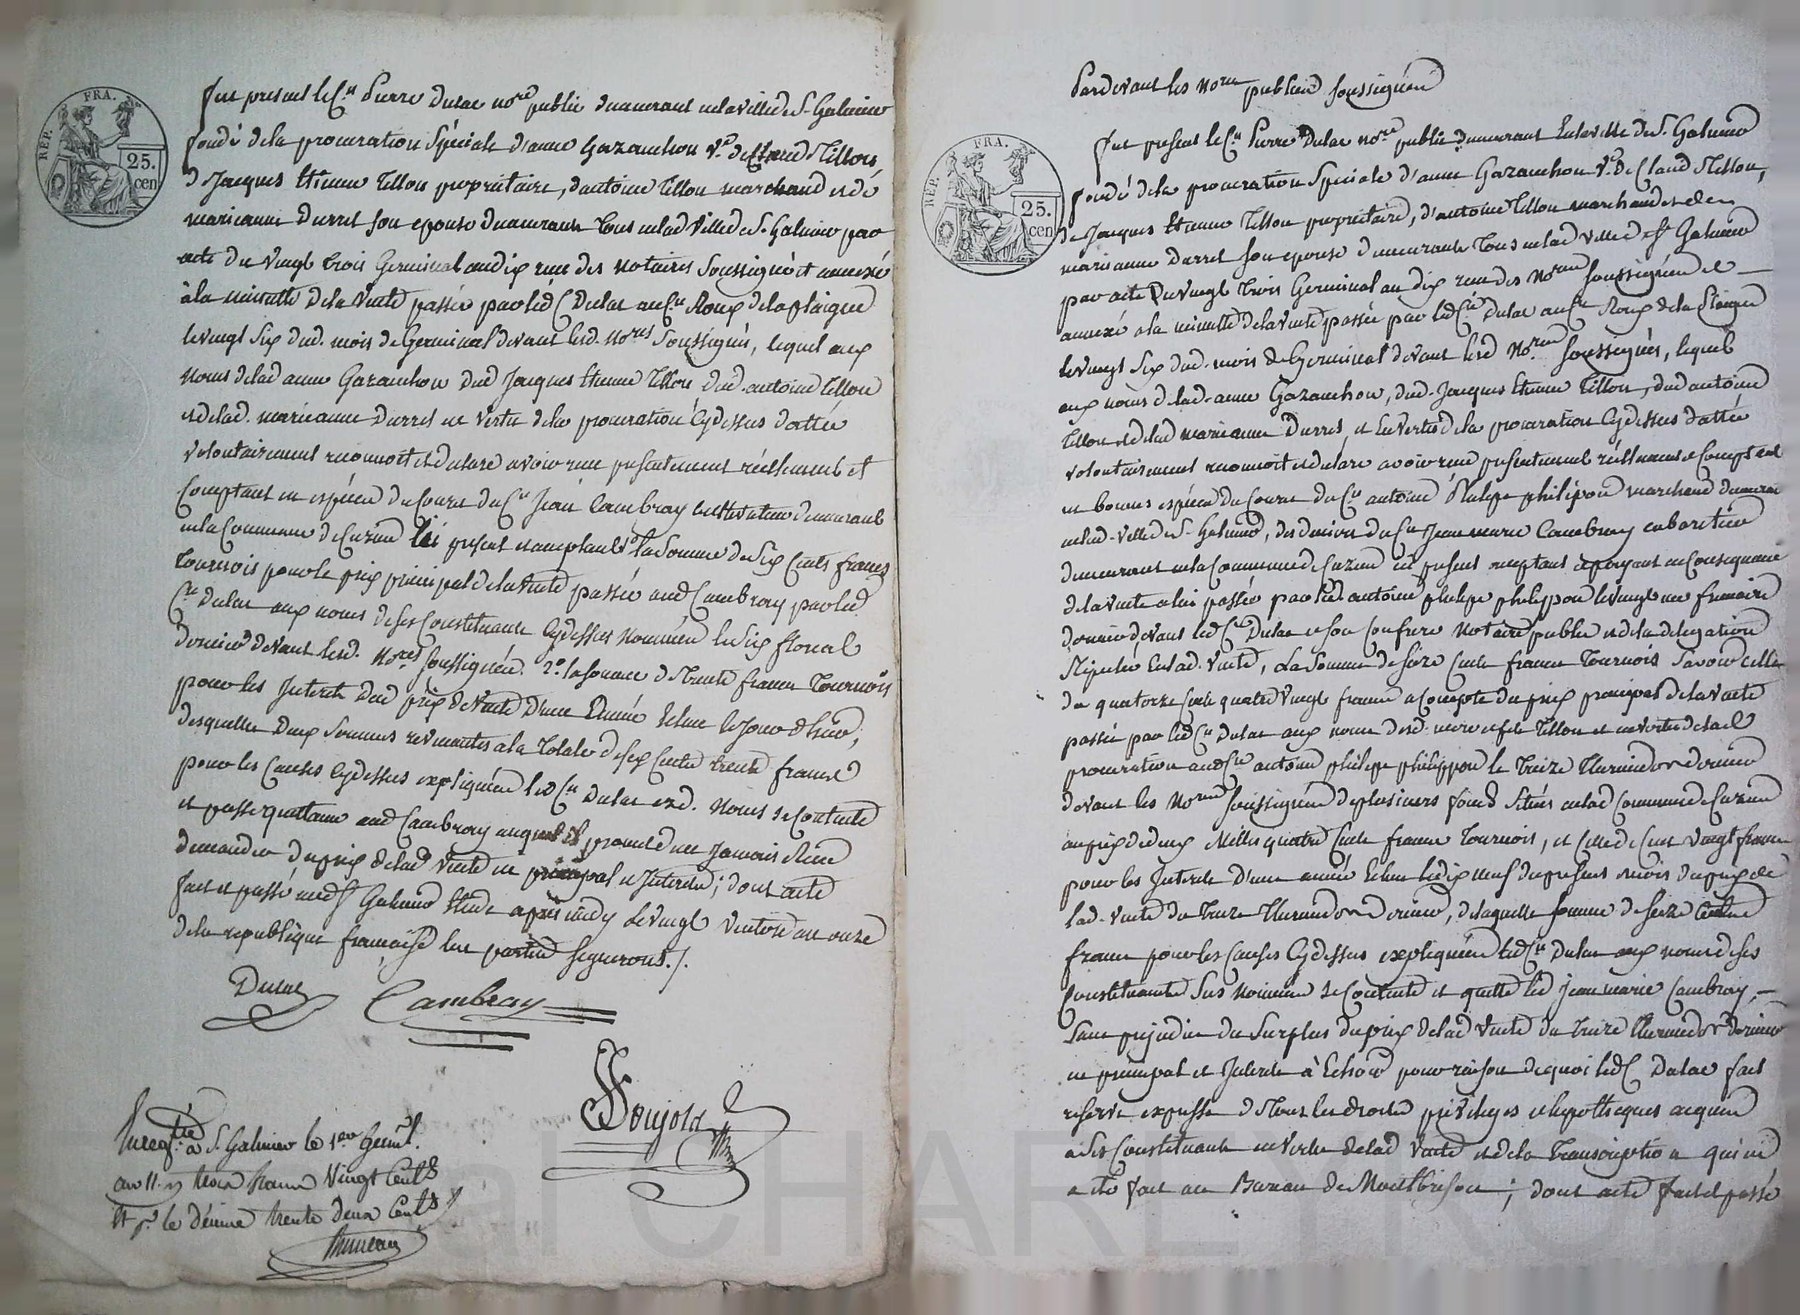 REP. FRA.
25.
cen
fut present le Cen Pierre Dulac nore public demeurant en la ville de St Galmier
fondé de la procuration spéciale d'anne Gazanchon Ve de Claude Tillon
de Jacques Etienne Tillon propriétaire, d'antoine Tillon marchand et de
marieanne Durret son epouse demeurants tous en lad ville de St Galmier par
acte du vingt trois Germinal an dix reçu des notaires soussignés et annexé
à la minutte de la vente passée par led C Dulac au Cn Roux de la plaigne
le vingt six dud. mois de Germinal devant lesd. Nores soussignés, lequel aux
noms de lad anne Gazanchon dud Jacques Etienne Tillon dud. antoine Tillon
et de lad. marieanne Durret en vertu de la procuration cydessus dattée
volontairement reconnoit et declare avoir reçu presentement réellement et
comptant en espéces de cours du Cn Jean Cambray cultivateur demeurant
en la Commune de Cuzieu ici present et acceptant 1o la somme de six cents francs
tournois pour le prix principal de la vente passée aud Cambray par led
Cn Dulac aux noms de ses constituants cydessus nommés le six floreal
dernier devant lesd. Nores soussignés. 2o la somme de trente francs tournois
pour les interets dud prix de vente d'une année echue le jour d'hier,
desquelles deux sommes revenantes a la totale de six cents trente francs
pour les causes cydessus expliquées led Cn Dulac ezd. noms se contente
et passe quittance aud Cambray auquel il promet de ne jamais rien
demander du prix de lad vente en principal et interets; dont acte
fait et passé aud St Galmier etude après midy le vingt ventose an onze
de la republique française les parties signeront ./.
Dulac Cambray
Soujold
Enregtré à St Galmier le 1er Germl.
an 11. reçu trois francs vingt cents
et pr le décime trente deux cents
REP. FRA.
25.
cen
Pardevant les Nores publics soussignés
fut present le Cn Pierre Dulac nore public demeurant en la ville de St Galmier
fondé de la procuration speciale d'anne Gazanchon Ve de Claude Tillon,
de Jacques Etienne Tillon propriétaire, d'antoine Tillon marchand et de
marieanne Durret son epouse demeurants tous en lad ville de St Galmier
par acte du vingt trois Germinal an dix reçu des Nores soussignés et
annexé a la minutte de la vente passée par led Cn Dulac au Cn Roux de la Plaigne
le vingt six dud. mois de Germinal devant lesd Nores soussignés, lequel
aux noms de lad. anne Gazanchon, dud. Jacques Etienne Tillon, dud antoine
Tillon et de lad marieanne Durret, et en vertu de la procuration cydessus dattée
volontairement reconnoit et declare avoir reçu presentement réellement et comptant
en bonnes espéces de cours du Cn antoine Philipe philipon marchand demeurant
en lad. ville de St Galmier, des deniers du Cn Jean marie Cambray cabaretier
demeurant en la Commune de Cuzieu ici present acceptant et payant en consequence
de la vente a lui passée par led antoine philipe philipon le vingt un frimaire
dernier devant led Cn Dulac et son confrere notaires publics et de la delegation
stipulée en lad. vente, la somme de seize cents francs tournois savoir celle
de quatorze cents quatre vingt francs a compte du prix principal de la vente
passée par led Cn Dulac aux noms desd. mere et fils Tillon et en vertu de lad
procuration aud Cn antoine philipe philippon le treize thermidor dernier
devant les Nores soussignés de plusieurs fonds situés en lad Commune de Cuzieu
au prix de deux milles quatre cents francs tournois, et celle de cent vingt francs
pour les interets d'une année echue le dix neuf du present mois du prix de
lad. vente du treize thermidor dernier, de laquelle somme de seize cents
francs pour les causes cydessus expliquées led Cn Dulac aux noms de ses
constituants sus nommés se contente et quitte led Jean marie Cambray, —
sans prejudice du surplus du prix de lad vente du treize thermidor dernier
en principal et interets à echoir pour raison de quoi led C Dulac fait
reserve expresse de tous les droits privileges et hypotheques acquis
a ses constituants en vertu de lad vente et de la transcription qui en
a eté fait au Bureau de Montbrison; dont acte fait et passé
al CHAREYRON